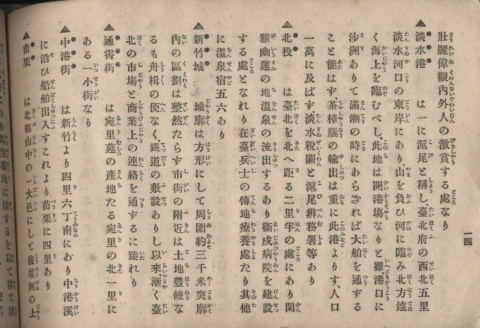 一四
壯麗偉觀內外人の激賞する處なり
▲淡水港 は一に滬尾と稱し臺北府の西北五里
淡水河口の東岸にあり、山を負ひ河に臨み北方遠
く海上を臨むべし、此地は開港塲なりと雖港口に
沙洲ありて滿潮の時にあらざれば大船を通する
こと能はず茶樟腦の輸出は重に此港よりす、人口
一萬に及ばず淡水稅關と滬尾辨務署等あり
▲北投 は臺北を北へ距る二里半の處にあり閑
雅幽邃の地溫泉の流出するあり衛戍病院を建設
する處となれり在臺兵士の傳地療養處たり其他
に溫泉宿五六あり
▲新竹城 城廓は方形にして周圍約三千米突廓
內の區劃は整然たらず市街の附近は土地豐饒な
るも舟楫の便なく鐵道の敷設ありし以來漸く臺
北の市塲と商業上の連絡を通ずるに臻れり
▲通霄街 は宛里莚の產地たる宛里の北一里に
ある一小街なり
▲中港街 は新竹より四里六丁南にあり中港溪
に沿ひ船舶出入すこれより苗栗に四里あり
▲苗栗 は北部山中の一大邑にして後壠河の上